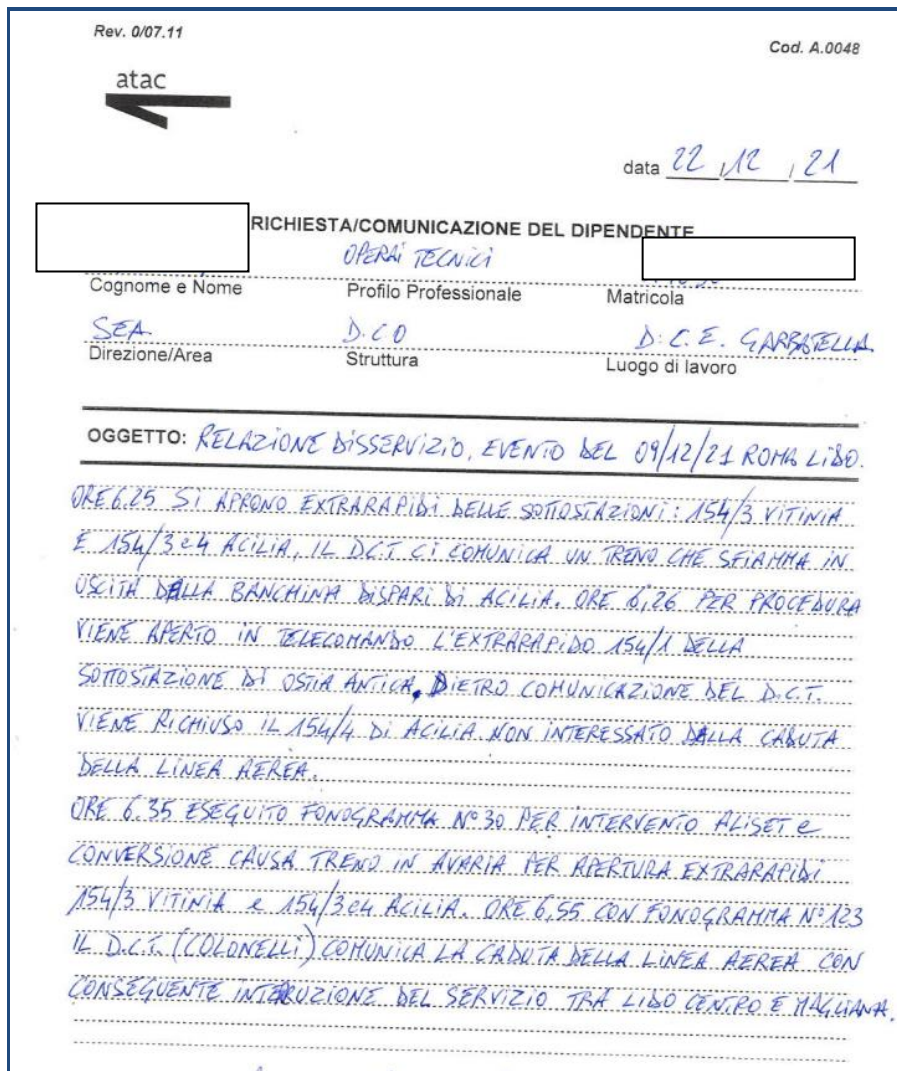 Rev. 0/07.11
Cod. A.0048
atac
data 22 / 12 / 21
RICHIESTA/COMUNICAZIONE DEL DIPENDENTE
OPERAI TECNICI
Cognome e Nome Profilo Professionale Matricola
SEA D.CO D.C.E. GARBATELLA
Direzione/Area Struttura Luogo di lavoro
OGGETTO: RELAZIONE DISSERVIZIO, EVENTO DEL 09/12/21 ROMA LIDO.
ORE 6.25 SI APRONO EXTRARAPIDI DELLE SOTTOSTAZIONI: 154/3 VITINIA
E 154/3 e 4 ACILIA, IL D.C.T CI COMUNICA UN TRENO CHE SFIAMMA IN
USCITA DALLA BANCHINA DISPARI DI ACILIA. ORE 6,26 PER PROCEDURA
VIENE APERTO IN TELECOMANDO L'EXTRARAPIDO 154/1 DELLA
SOTTOSTAZIONE DI OSTIA ANTICA, DIETRO COMUNICAZIONE DEL D.C.T.
VIENE RICHIUSO IL 154/4 DI ACILIA NON INTERESSATO DALLA CADUTA
DELLA LINEA AEREA.
ORE 6.35 ESEGUITO FONOGRAMMA N°30 PER INTERVENTO ALISET e
CONVERSIONE CAUSA TRENO IN AVARIA PER APERTURA EXTRARAPIDI
154/3 VITINIA e 154/3 e 4 ACILIA. ORE 6,55 CON FONOGRAMMA N°123
IL D.C.T. (COLONELLI) COMUNICA LA CADUTA DELLA LINEA AEREA CON
CONSEGUENTE INTERUZIONE DEL SERVIZIO TRA LIDO CENTRO E MAGLIANA.